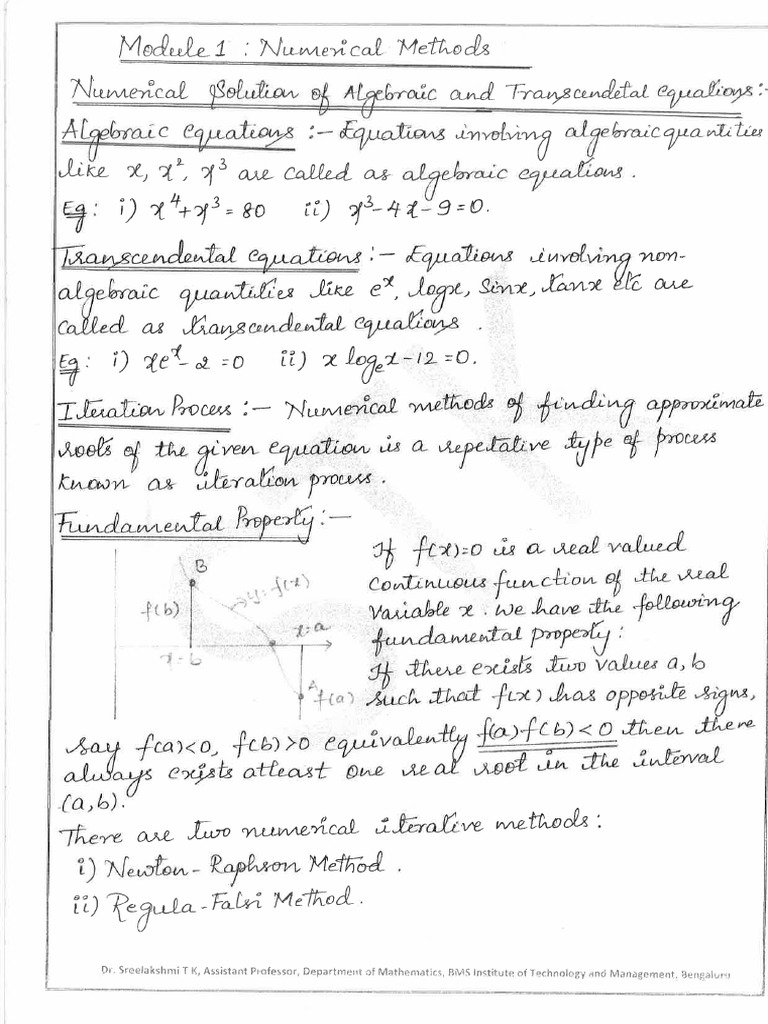 Module 1 : Numerical Methods
Numerical Solution of Algebraic and Transcendetal equations:-
Algebraic equations :- Equations involving algebraic quantities
like x, x², x³ are called as algebraic equations.
Eg: i) x⁴+x³=80 ii) x³-4x-9=0.
Transcendental equations:- Equations involving non-
algebraic quantities like eˣ, logx, Sinx, tanx etc are
called as transcendental equations.
Eg: i) xeˣ-2=0 ii) x logₑx-12=0.
Iteration Process:- Numerical methods of finding approximate
roots of the given equation is a repetative type of process
known as iteration process.
Fundamental Property:-
B
f(b)
y=f(x)
x=a
x=b
A
f(a)
If f(x)=0 is a real valued
continuous function of the real
variable x. we have the following
fundamental property:
If there exists two values a, b
such that f(x) has opposite signs,
say f(a)<0, f(b)>0 equivalently f(a)·f(b)<0 then there
always exists atleast one real root in the interval
(a,b).
There are two numerical iterative methods:
i) Newton-Raphson Method.
ii) Regula-Falsi Method.
Dr. Sreelakshmi T K, Assistant Professor, Department of Mathematics, BMS Institute of Technology and Management, Bengaluru